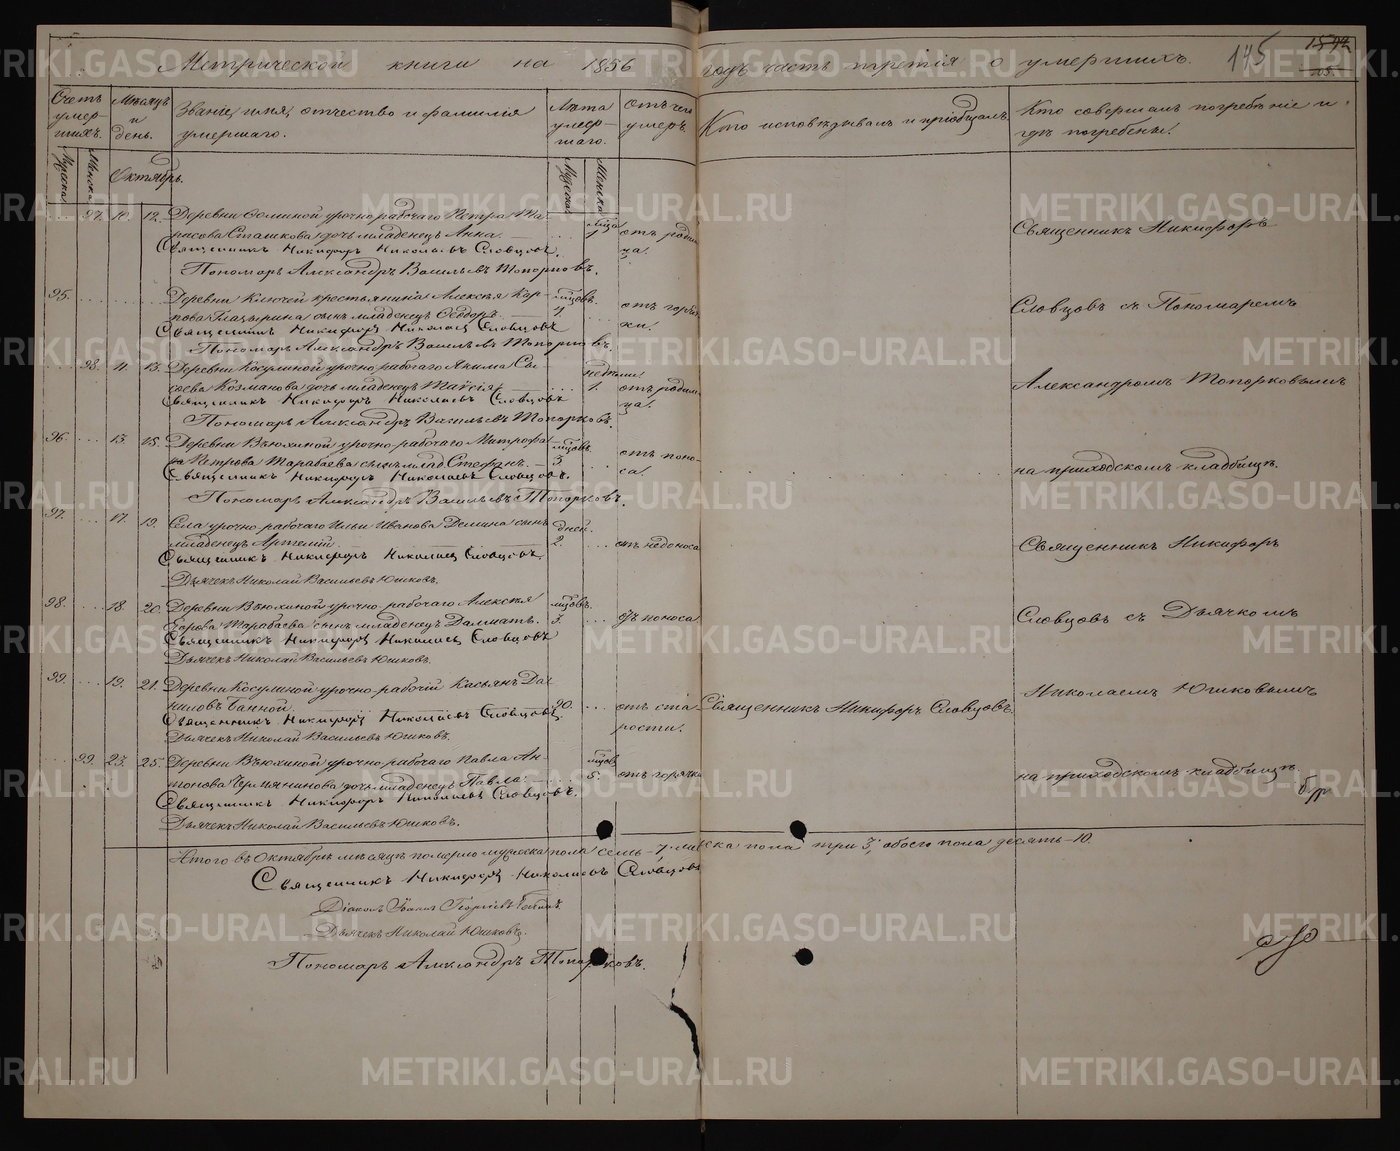 Метрической книги на 1856 годъ часть третія о умершихъ.
145
Счетъ умер-
шихъ.
Мужска
Женска
Месяцъ
и
день.
Званіе, имя, отчество и фамилія
умершаго.
Лѣта
умер-
шаго.
Мужска
Женска
Отъ чего
умеръ.
Кто исповѣдывалъ и пріобщалъ.
Кто совершалъ погребеніе и
гдѣ погребены.
Октябрь.
97. 10. 12. Деревни урочно-рабочаго Петра Та-
расова Сташкова дочь младенецъ Анна.
отъ родим-
ца.
Священникъ Никифоръ Николаевъ Словцовъ.
Пономарь Александръ Васильевъ Топорковъ.
95. Деревни Ключей крестьянина Алексѣя Кар-
пова сынъ младенецъ Ѳедоръ.
мѣсцовъ.
отъ горяч-
ки.
Священникъ Никифоръ Николаевъ Словцовъ
Пономарь Александръ Васильевъ Топорковъ.
98. 11. 13. Деревни Косулиной урочно-рабочаго Якима Сы-
соева Козманова дочь младенецъ Таисія
недѣли.
1.
отъ родим-
ца.
Священникъ Никифоръ Николаевъ Словцовъ
Пономарь Александръ Васильевъ Топорковъ.
96. 13. 15. Деревни Вьюхиной урочно-рабочаго Митрофа-
на Петрова Тарабаева сынъ млад. Стефанъ.
мѣсцовъ.
3.
отъ поно-
са.
Священникъ Никифоръ Николаевъ Словцовъ.
Пономарь Александръ Васильевъ Топорковъ.
97. 17. 19. Села урочно-рабочаго Ильи Иванова Демина сынъ
младенецъ Артемій.
дней.
2.
отъ недоноса
Священникъ Никифоръ Николаевъ Словцовъ
Дьячекъ Николай Васильевъ Юшковъ.
98. 18. 20. Деревни Вьюхиной урочно-рабочаго Алексѣя
Егорова Тарабаева сынъ младенецъ Далматъ.
мѣсцовъ.
3.
отъ поноса
Священникъ Никифоръ Николаевъ Словцовъ
Дьячекъ Николай Васильевъ Юшковъ.
99. 19. 21. Деревни Косулиной урочно-рабочій Касьянъ Да-
ниловъ Банной.
90.
отъ ста-
рости.
Священникъ Никифоръ Словцовъ.
Священникъ Никифоръ Николаевъ Словцовъ.
Дьячекъ Николай Васильевъ Юшковъ.
99. 23. 25. Деревни Вьюхиной урочно-рабочаго Павла Ан-
тонова Чермянинова дочь младенецъ Павла.
мѣсцовъ
5.
отъ горячки
Священникъ Никифоръ Николаевъ Словцовъ.
Дьячекъ Николай Васильевъ Юшковъ.
Священникъ Никифоръ
Словцовъ съ Пономаремъ
Александромъ Топорковымъ
на приходскомъ кладбищѣ.
Священникъ Никифоръ
Словцовъ съ Дьячкомъ
Николаемъ Юшковымъ
на приходскомъ кладбищѣ
Итого въ Октябрѣ мѣсяцѣ померло мужеска пола семь-7, женска пола три 3, обоего пола десять-10.
Священникъ Никифоръ Николаевъ Словцовъ
Діаконъ Іоаннъ Георгіевъ
Дьячекъ Николай Юшковъ.
Пономарь Александръ Топорковъ.
METRIKI.GASO-URAL.RU